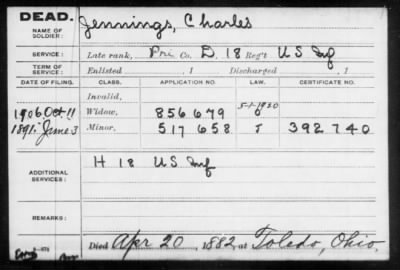 DEAD.
NAME OF SOLDIER: Jennings, Charles
SERVICE: Late rank, Pri Co. D, 18 Reg't US Inf
TERM OF SERVICE: Enlisted , 1 Discharged , 1
DATE OF FILING. CLASS. APPLICATION NO. LAW. CERTIFICATE NO.
Invalid,
5-1-1920
1906 Oct 11 Widow, 856679
1891, June 3 Minor, 517658 J 392740
ADDITIONAL SERVICES: H 18 US Inf
REMARKS:
Died Apr 20, 1882, at Toledo, Ohio.